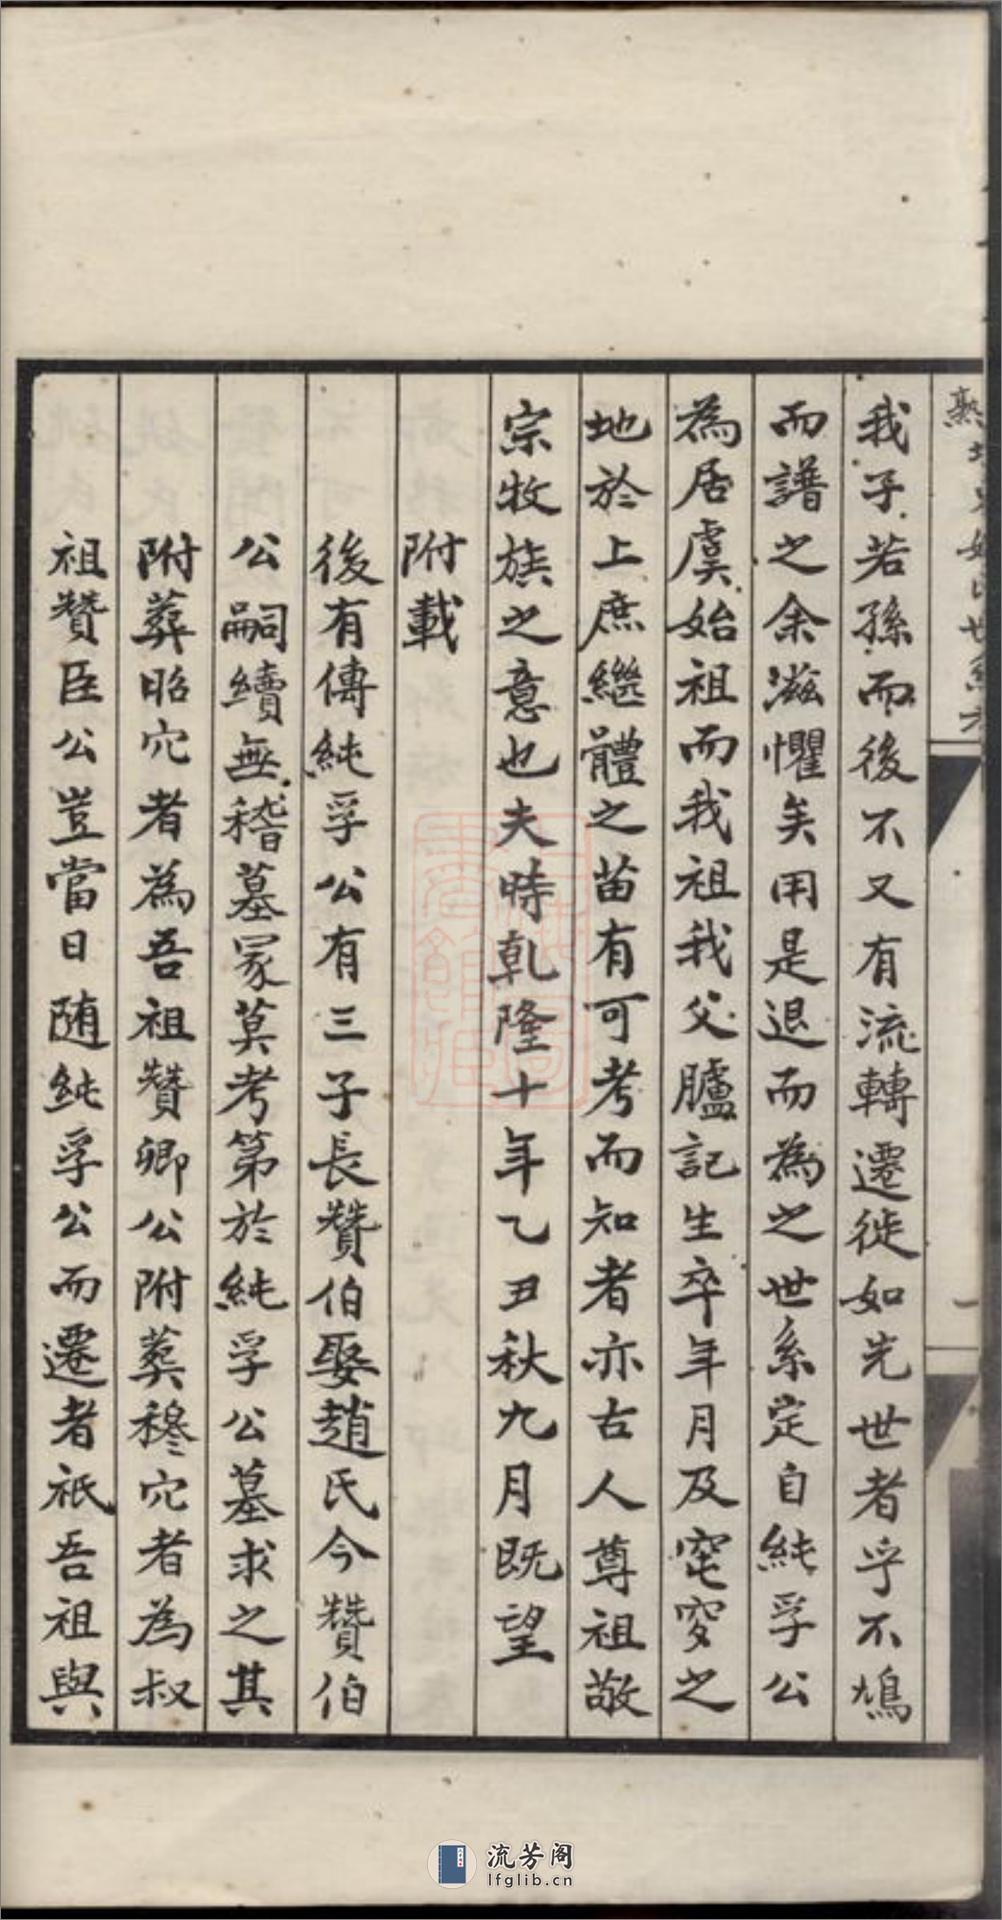 我子若孫而後不又有流轉遷徙如先世者乎不鳩
而譜之余滋懼矣用是退而為之世系定自純孚公
為居虞始祖而我祖我父臚記生卒年月及窀穸之
地於上庶繼體之苗有可考而知者亦古人尊祖敬
宗收族之意也夫時乾隆十年乙丑秋九月既望
附載
後有傳純孚公有三子長贊伯娶趙氏今贊伯
公嗣續無稽墓冢莫考第於純孚公墓求之其
附葬昭穴者為吾祖贊卿公附葬穆穴者為叔
祖贊臣公豈當日随純孚公而遷者祇吾祖與
流芳阁
lfglib.cn